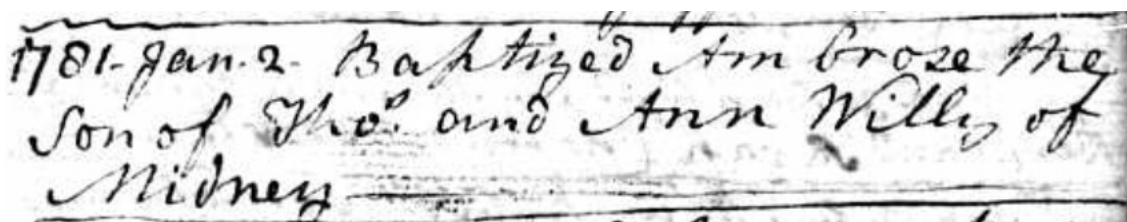 1781. Jan. 2. Baptized Ambrose the
Son of Thos. and Ann Willy of
Midney